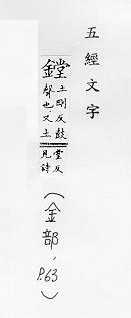 五經文字
鏜土剛反鼓
聲也又土
堂反
見詩
(金部, P.63)